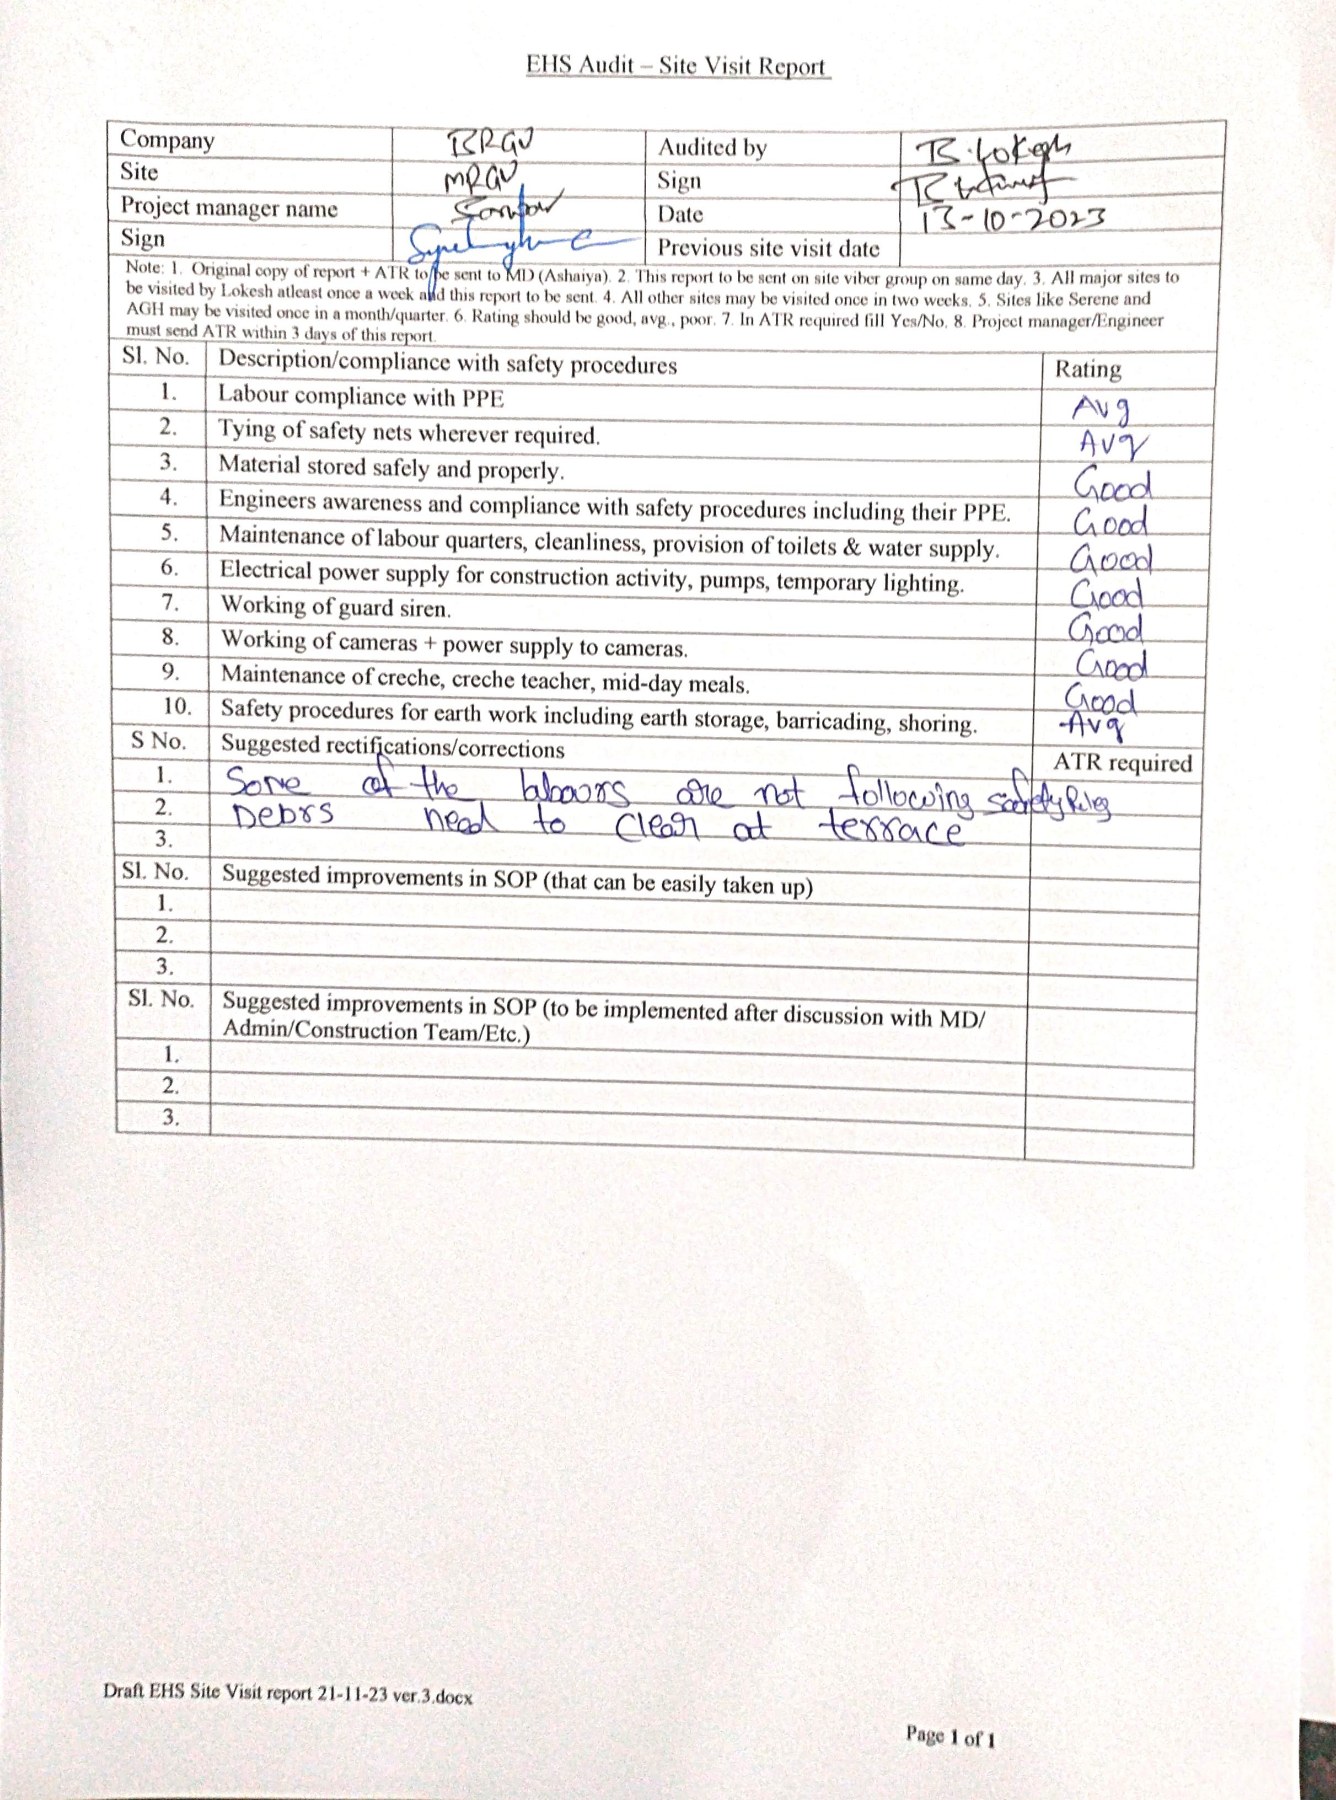 EHS Audit – Site Visit Report
Company BRGV Audited by B. Lokesh
Site MRGV Sign
Project manager name Date 13-10-2023
Sign Previous site visit date
Note: 1. Original copy of report + ATR to be sent to MD (Ashaiya). 2. This report to be sent on site viber group on same day. 3. All major sites to
be visited by Lokesh atleast once a week and this report to be sent. 4. All other sites may be visited once in two weeks. 5. Sites like Serene and
AGH may be visited once in a month/quarter. 6. Rating should be good, avg., poor. 7. In ATR required fill Yes/No. 8. Project manager/Engineer
must send ATR within 3 days of this report.
Sl. No. Description/compliance with safety procedures Rating
1. Labour compliance with PPE Avg
2. Tying of safety nets wherever required. Avg
3. Material stored safely and properly. Good
4. Engineers awareness and compliance with safety procedures including their PPE. Good
5. Maintenance of labour quarters, cleanliness, provision of toilets & water supply. Good
6. Electrical power supply for construction activity, pumps, temporary lighting. Good
7. Working of guard siren. Good
8. Working of cameras + power supply to cameras. Good
9. Maintenance of creche, creche teacher, mid-day meals. Good
10. Safety procedures for earth work including earth storage, barricading, shoring. Avg
S No. Suggested rectifications/corrections ATR required
1. Some of the labours are not following safety Rules
2. Debrs need to clear at terrace
3.
Sl. No. Suggested improvements in SOP (that can be easily taken up)
1.
2.
3.
Sl. No. Suggested improvements in SOP (to be implemented after discussion with MD/
Admin/Construction Team/Etc.)
1.
2.
3.
Draft EHS Site Visit report 21-11-23 ver.3.docx
Page 1 of 1